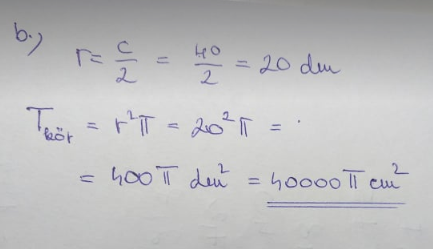 b.,)
r = c/2 = 40/2 = 20 dm
Tkör = r²π = 20²π =
= 400π dm² = 40000π cm²